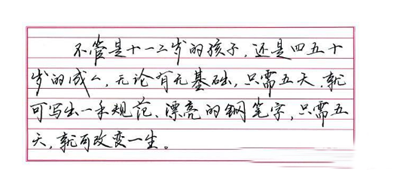 不管是十一二岁的孩子,还是四五十
岁的成人,无论有无基础,只需五天,就
可写出一手规范、漂亮的钢笔字,只需五
天,就可改变一生。